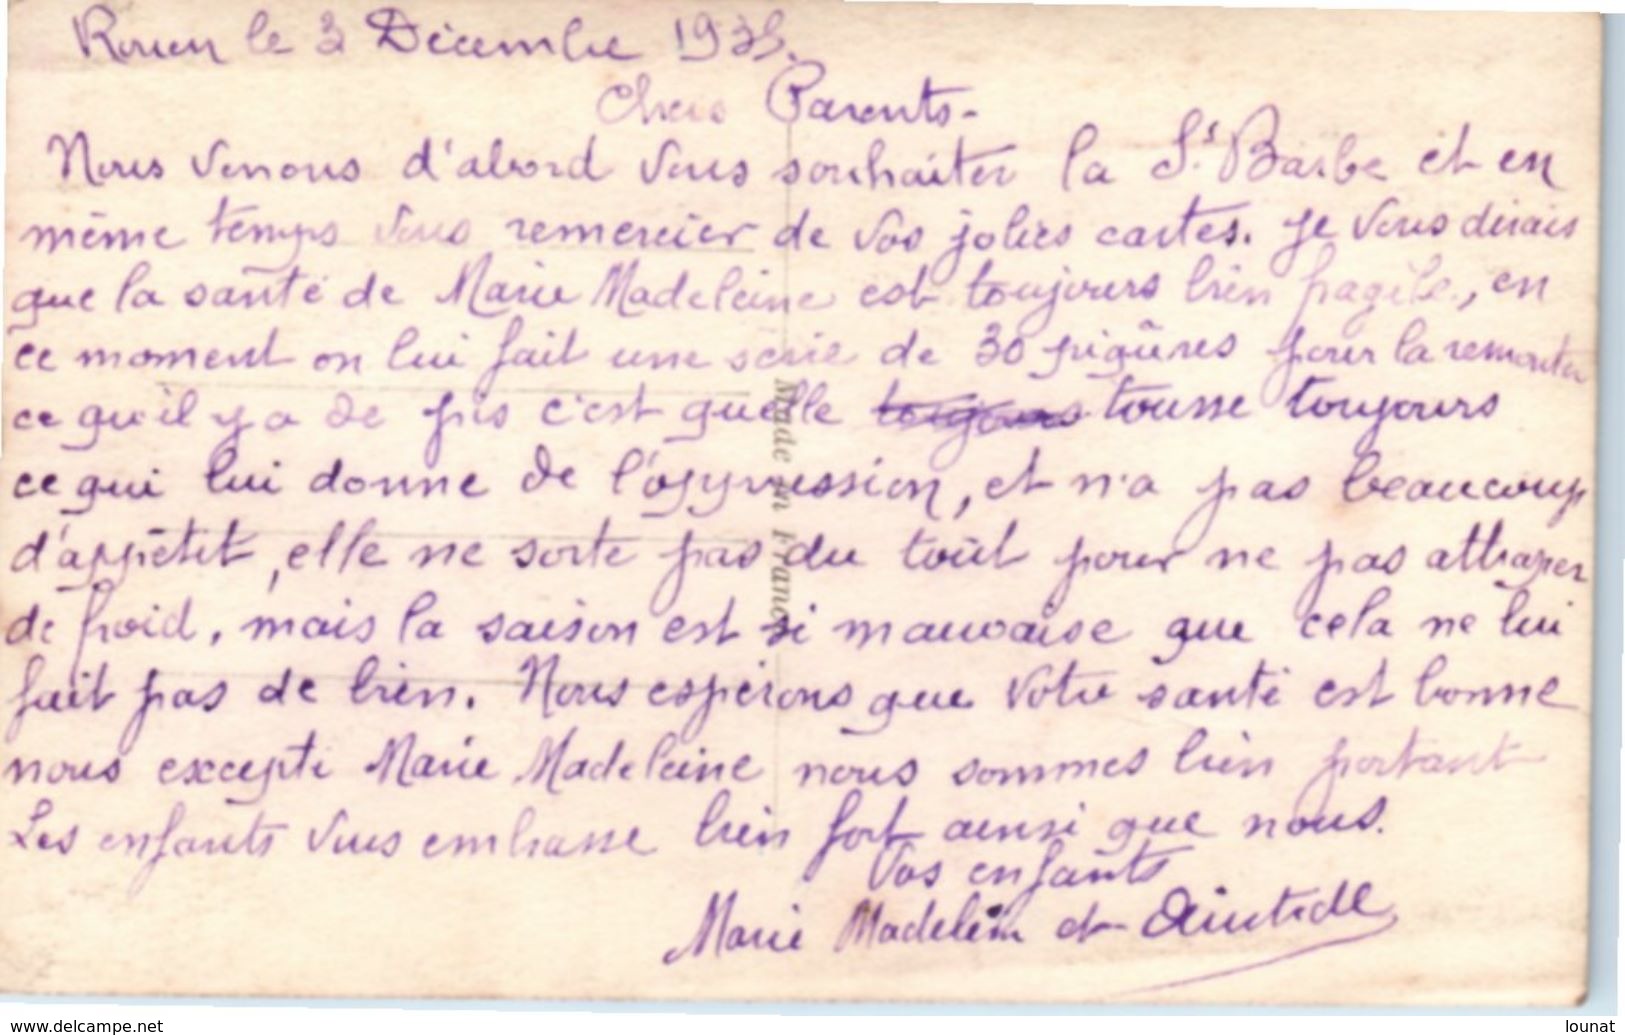 Rouen le 3 Décembre 193
Chers Parents-
Nous venons d'abord vous souhaiter la St Barbe et en
même temps vous remercier de vos jolies cartes. Je vous dirais
que la santé de Marie Madeleine est toujours bien fragile, en
ce moment on lui fait une série de 30 piqûres pour la remonter
ce qu'il y a de pis c'est quelle toujours tousse toujours
ce qui lui donne de l'oppression, et n'a pas beaucoup
d'appétit, elle ne sorte pas du toût pour ne pas attraper
de froid, mais la saison est si mauvaise que cela ne lui
fait pas de bien. Nous espérons que votre santé est bonne
nous excepté Marie Madeleine nous sommes bien portant
Les enfants vous embrasse bien fort ainsi que nous.
Vos enfants
Marie Madeleine et
Made in France
www.delcampe.net
lounat